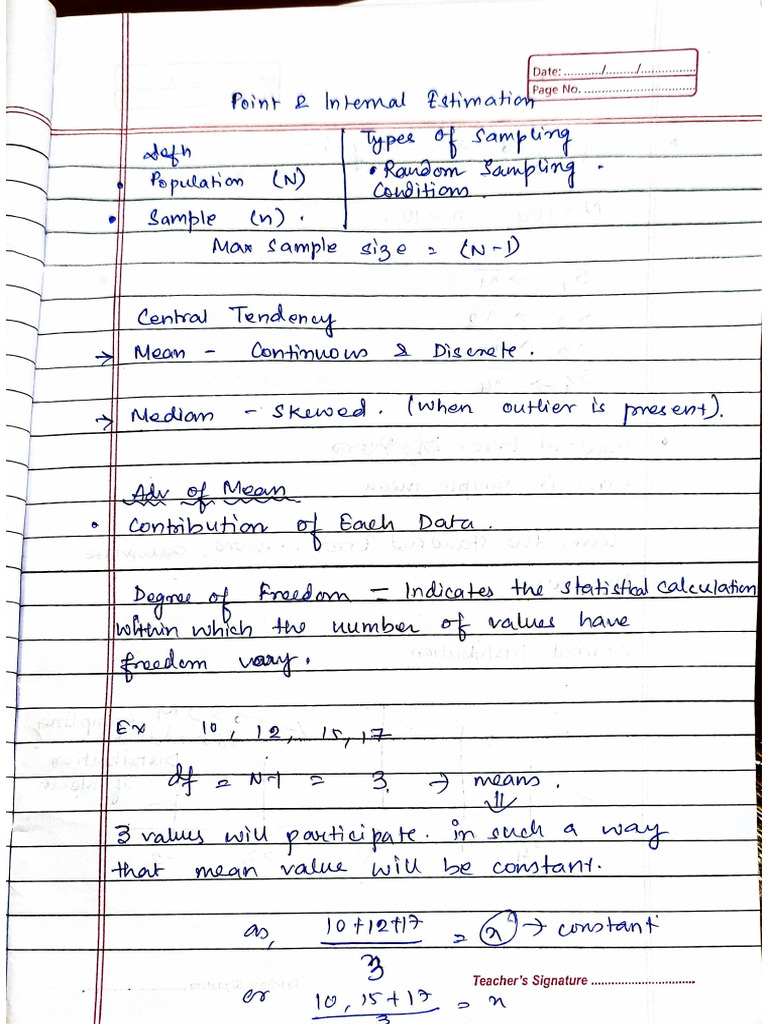 Date: .........../........./...............
Page No. ................................
Point & Internal Estimation
Defn
• Population (N)
• Sample (n).
Types of Sampling
• Random Sampling.
Conditions
Max Sample size = (N-1)
Central Tendency
→ Mean - Continuous & Discrete.
→ Median - Skewed. (when outlier is present).
Adv of Mean
• Contribution of Each Data.
Degree of Freedom = Indicates the statistical calculation
within which the number of values have
freedom vary.
Ex 10, 12, 15, 17
df = N-1 = 3. → means.
⇓
3 values will participate. in such a way
that mean value will be constant.
as, 10+12+17 / 3 = x → constant
Teacher's Signature ................................
or 10, 15+17 / 3 = x